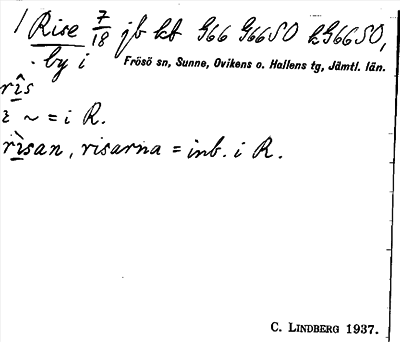 / Rise 7/18 jb kt G66 G66SO kG66SO,
by i Frösö sn, Sunne, Ovikens o. Hallens tg, Jämtl. län.
rîs
i ~ = i R.
rìsan, risarna = inb. i R.
C. LINDBERG 1937.